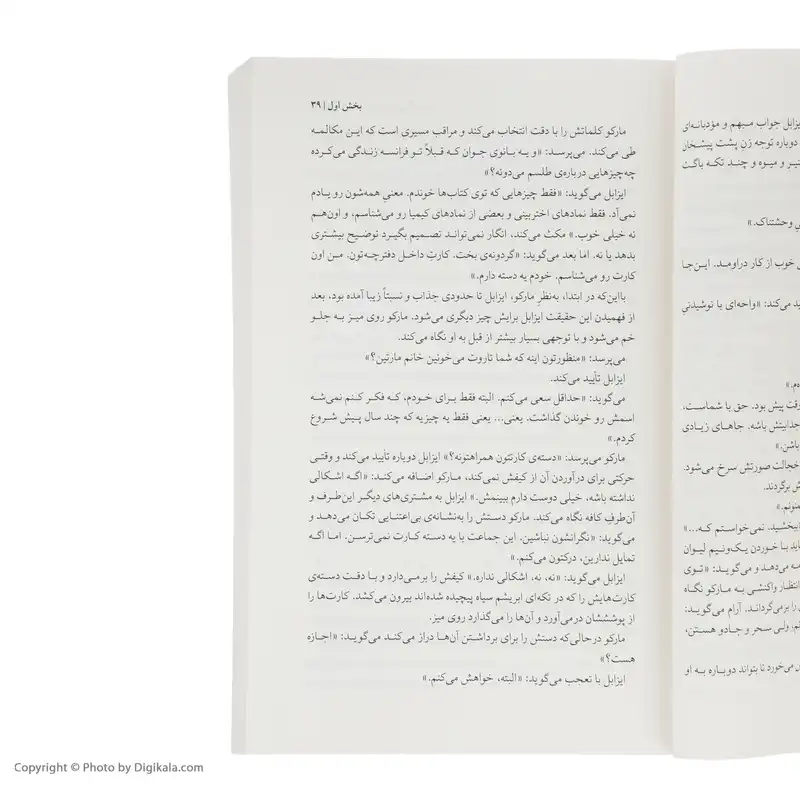 ایزابل جواب مبهم و مؤدبانه‌ای
دوباره توجه زنِ پشت پیشخان
پنیر و میوه و چند تکه باگت
وحشتناک.»
خوب از کار دراومد. این‌جا
می‌کند: «واحه‌ای با نوشیدنیِ
وقت پیش بود. حق با شماست،
جذابیتش باشه. جاهای زیادی
باشن.»
خجالت صورتش سرخ می‌شود.
برگردند.
ممنونم.»
ببخشید. نمی‌خواستم که...»
با خوردن یک‌ونیم لیوان
می‌دهد و می‌گوید: «توی
انتظار واکنشی به مارکو نگاه
را برمی‌گرداند. آرام می‌گوید:
ولی سحر و جادو هستن،
می‌خورد تا بتواند دوباره به او
بخش اول | ۳۹
مارکو کلماتش را با دقت انتخاب می‌کند و مراقب مسیری است که این مکالمه
طی می‌کند. می‌پرسد: «و یه بانوی جوان که قبلاً تو فرانسه زندگی می‌کرده
چه‌چیزهایی درباره‌ی طلسم می‌دونه؟»
ایزابل می‌گوید: «فقط چیزهایی که توی کتاب‌ها خوندم. معنیِ همه‌شون رو یادم
نمی‌آد. فقط نمادهای اختربینی و بعضی از نمادهای کیمیا رو می‌شناسم، و اون‌هم
نه خیلی خوب.» مکث می‌کند، انگار نمی‌تواند تصمیم بگیرد توضیح بیشتری
بدهد یا نه. اما بعد می‌گوید: «گردونه‌ی بخت. کارتِ داخل دفترچه‌تون. من اون
کارت رو می‌شناسم. خودم یه دسته دارم.»
بااین‌که در ابتدا، به‌نظرِ مارکو، ایزابل تا حدودی جذاب و نسبتاً زیبا آمده بود، بعد
از فهمیدن این حقیقت ایزابل برایش چیز دیگری می‌شود. مارکو روی میز به جلو
خم می‌شود و با توجهی بسیار بیشتر از قبل به او نگاه می‌کند.
می‌پرسد: «منظورتون اینه که شما تاروت می‌خونین خانم مارتین؟»
ایزابل تأیید می‌کند.
می‌گوید: «حداقل سعی می‌کنم. البته فقط برای خودم، که فکر کنم نمی‌شه
اسمش رو خوندن گذاشت. یعنی... یعنی فقط یه چیزیه که چند سال پیش شروع
کردم.»
مارکو می‌پرسد: «دسته‌ی کارتتون همراهتونه؟» ایزابل دوباره تایید می‌کند و وقتی
حرکتی برای درآوردن آن از کیفش نمی‌کند، مارکو اضافه می‌کند: «اگه اشکالی
نداشته باشه، خیلی دوست دارم ببینمش.» ایزابل به مشتری‌های دیگر این‌طرف و
آن‌طرفِ کافه نگاه می‌کند. مارکو دستش را به‌نشانه‌ی بی‌اعتنایی تکان می‌دهد و
می‌گوید: «نگرانشون نباشین. این جماعت با یه دسته کارت نمی‌ترسن. اما اگه
تمایل ندارین، درکتون می‌کنم.»
ایزابل می‌گوید: «نه، نه، اشکالی نداره.» کیفش را برمی‌دارد و با دقت دسته‌ی
کارت‌هایش را که در تکه‌ای ابریشم سیاه پیچیده شده‌اند بیرون می‌کشد. کارت‌ها را
از پوششان درمی‌آورد و آن‌ها را می‌گذارد روی میز.
مارکو درحالی‌که دستش را برای برداشتن آن‌ها دراز می‌کند می‌گوید: «اجازه
هست؟»
ایزابل با تعجب می‌گوید: «البته، خواهش می‌کنم.»
Copyright © Photo by Digikala.com